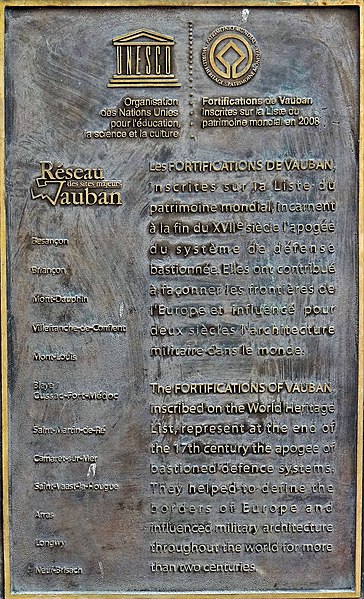 UNESCO
Organisation
des Nations Unies
pour l'éducation,
la science et la culture
Fortifications de Vauban
Inscrites sur la Liste du
patrimoine mondial en 2008
Réseau
des sites majeurs
Vauban
Besançon
Briançon
Mont-Dauphin
Villefranche-de-Conflent
Mont-Louis
Blaye /
Cussac-Fort-Médoc
Saint-Martin-de-Ré
Camaret-sur-Mer
Saint-Vaast-la-Hougue
Arras
Longwy
Neuf-Brisach
Les FORTIFICATIONS DE VAUBAN,
inscrites sur la Liste du
patrimoine mondial, incarnent
à la fin du XVIIe siècle l'apogée
du système de défense
bastionnée. Elles ont contribué
à façonner les frontières de
l'Europe et influencé pour
deux siècles l'architecture
militaire dans le monde.
The FORTIFICATIONS OF VAUBAN,
inscribed on the World Heritage
List, represent at the end of
the 17th century the apogee of
bastioned defence systems.
They helped to define the
borders of Europe and
influenced military architecture
throughout the world for more
than two centuries.